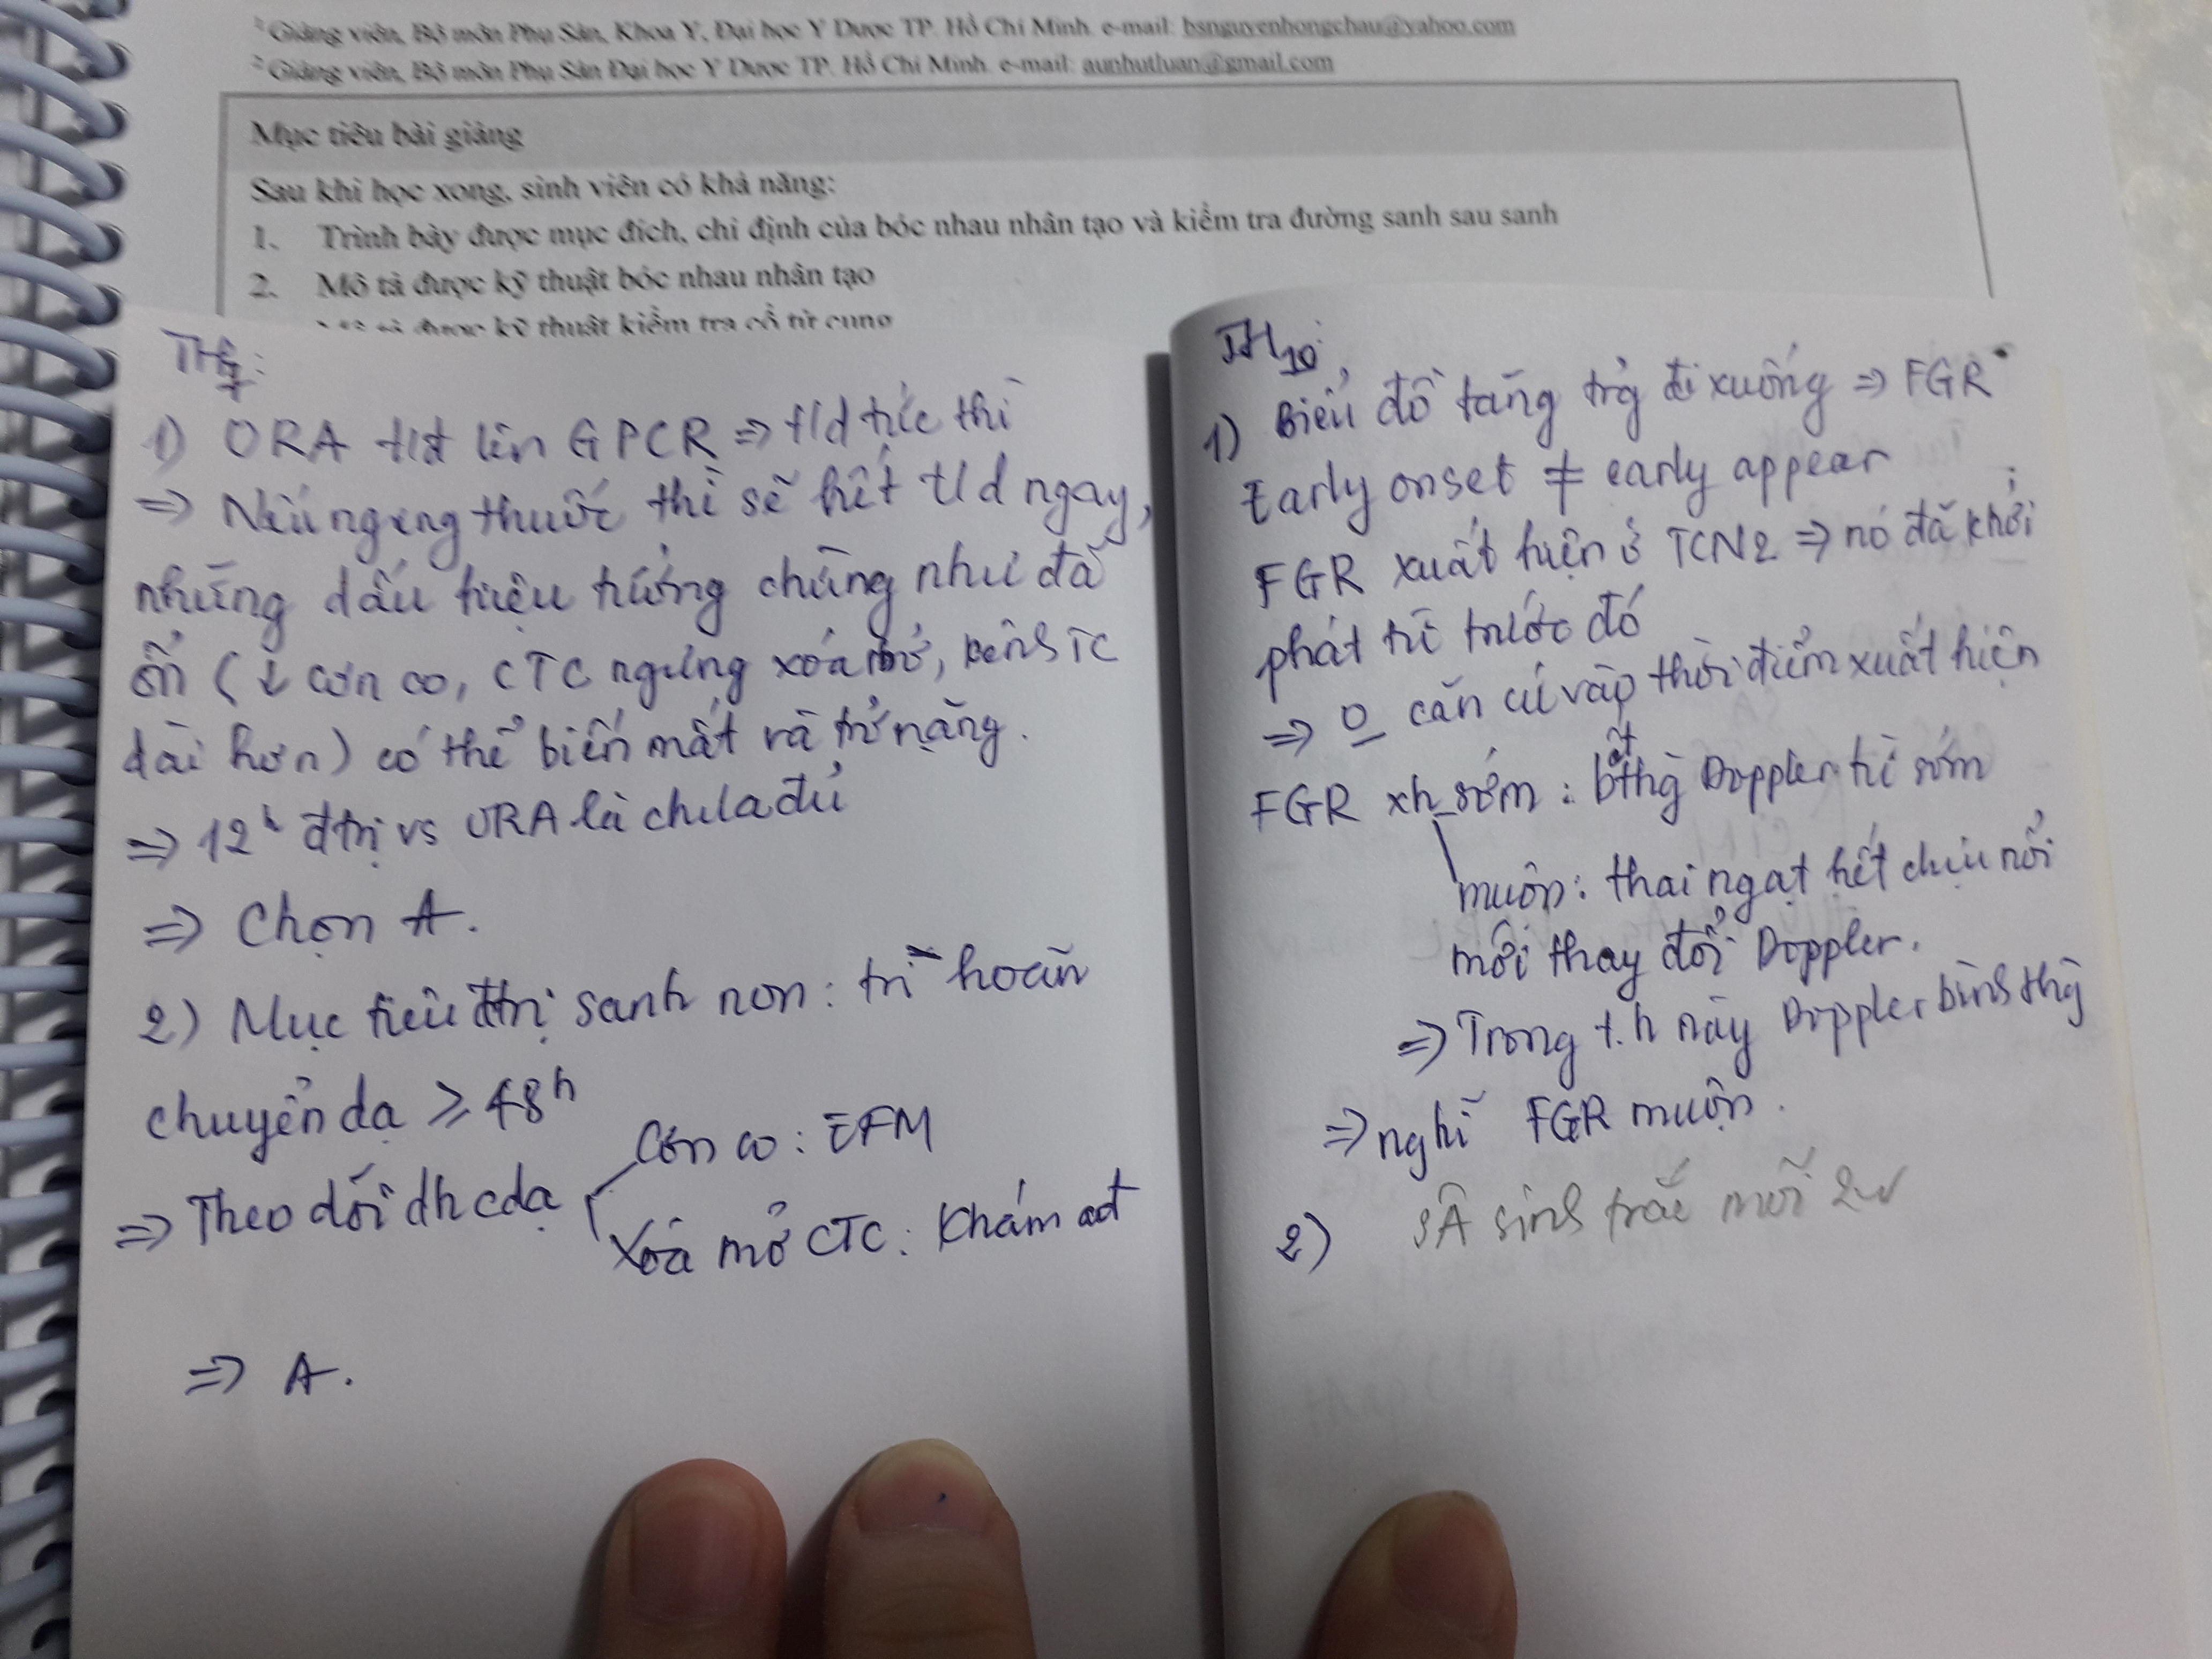 ¹ Giảng viên, Bộ môn Phụ Sản, Khoa Y, Đại học Y Dược TP. Hồ Chí Minh. e-mail: bsnguyenhongchau@yahoo.com
² Giảng viên, Bộ môn Phụ Sản Đại học Y Dược TP. Hồ Chí Minh. e-mail: aunhutluan@gmail.com
Mục tiêu bài giảng
Sau khi học xong, sinh viên có khả năng:
1. Trình bày được mục đích, chỉ định của bóc nhau nhân tạo và kiểm tra đường sanh sau sanh
2. Mô tả được kỹ thuật bóc nhau nhân tạo
được kỹ thuật kiểm tra cổ tử cung
1) ORA t/đ lên GPCR => t/d tức thì
=> Nếu ngưng thuốc thì sẽ hết t/d ngay,
những dấu hiệu tưởng chừng như đã
ổn (↓ cơn co, CTC ngưng xóa mở, kênh TC
dài hơn) có thể biến mất và trở nặng.
=> 12h đtrị vs ORA là chưa đủ
=> Chọn A.
2) Mục tiêu đtrị sanh non: trì hoãn
chuyển dạ ≥ 48h
=> Theo dõi dh cdạ
Cơn co: EFM
Xóa mở CTC: Khám ađ
=> A.
TH10:
1) Biểu đồ tăng trg đi xuống => FGR
Early onset ≠ early appear
FGR xuất hiện ở TCN2 => nó đã khởi
phát từ trước đó
=> O căn cứ vào thời điểm xuất hiện
FGR xh sớm: bthg Doppler từ sớm
muộn: thai ngạt hết chịu nổi
mới thay đổi Doppler.
=> Trong t.h này Doppler bình thg
=> nghĩ FGR muộn.
2) SA sinh trắc mỗi 2w